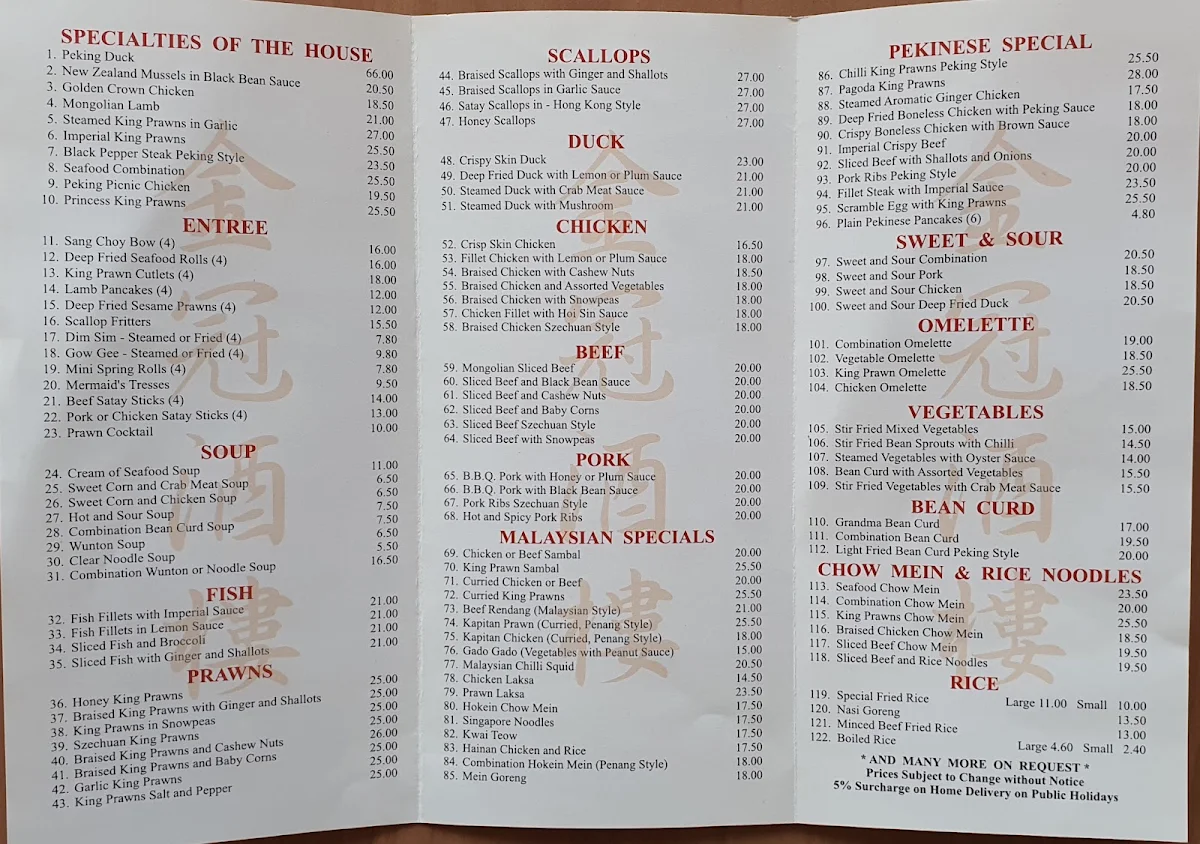 SPECIALTIES OF THE HOUSE
1. Peking Duck 66.00
2. New Zealand Mussels in Black Bean Sauce 20.50
3. Golden Crown Chicken 18.50
4. Mongolian Lamb 21.00
5. Steamed King Prawns in Garlic 27.00
6. Imperial King Prawns 25.50
7. Black Pepper Steak Peking Style 23.50
8. Seafood Combination 25.50
9. Peking Picnic Chicken 19.50
10. Princess King Prawns 25.50
ENTREE
11. Sang Choy Bow (4) 16.00
12. Deep Fried Seafood Rolls (4) 16.00
13. King Prawn Cutlets (4) 18.00
14. Lamb Pancakes (4) 12.00
15. Deep Fried Sesame Prawns (4) 12.00
16. Scallop Fritters 15.50
17. Dim Sim - Steamed or Fried (4) 7.80
18. Gow Gee - Steamed or Fried (4) 9.80
19. Mini Spring Rolls (4) 7.80
20. Mermaid's Tresses 9.50
21. Beef Satay Sticks (4) 14.00
22. Pork or Chicken Satay Sticks (4) 13.00
23. Prawn Cocktail 10.00
SOUP
24. Cream of Seafood Soup 11.00
25. Sweet Corn and Crab Meat Soup 6.50
26. Sweet Corn and Chicken Soup 6.50
27. Hot and Sour Soup 7.50
28. Combination Bean Curd Soup 7.50
29. Wunton Soup 6.50
30. Clear Noodle Soup 5.50
31. Combination Wunton or Noodle Soup 16.50
FISH
32. Fish Fillets with Imperial Sauce 21.00
33. Fish Fillets in Lemon Sauce 21.00
34. Sliced Fish and Broccoli 21.00
35. Sliced Fish with Ginger and Shallots 21.00
PRAWNS
36. Honey King Prawns 25.00
37. Braised King Prawns with Ginger and Shallots 25.00
38. King Prawns in Snowpeas 25.00
39. Szechuan King Prawns 25.00
40. Braised King Prawns and Cashew Nuts 26.00
41. Braised King Prawns and Baby Corns 25.00
42. Garlic King Prawns 25.00
43. King Prawns Salt and Pepper 25.00
金冠酒樓
SCALLOPS
44. Braised Scallops with Ginger and Shallots 27.00
45. Braised Scallops in Garlic Sauce 27.00
46. Satay Scallops in - Hong Kong Style 27.00
47. Honey Scallops 27.00
DUCK
48. Crispy Skin Duck 23.00
49. Deep Fried Duck with Lemon or Plum Sauce 21.00
50. Steamed Duck with Crab Meat Sauce 21.00
51. Steamed Duck with Mushroom 21.00
CHICKEN
52. Crisp Skin Chicken 16.50
53. Fillet Chicken with Lemon or Plum Sauce 18.00
54. Braised Chicken with Cashew Nuts 18.50
55. Braised Chicken and Assorted Vegetables 18.00
56. Braised Chicken with Snowpeas 18.00
57. Chicken Fillet with Hoi Sin Sauce 18.00
58. Braised Chicken Szechuan Style 18.00
BEEF
59. Mongolian Sliced Beef 20.00
60. Sliced Beef and Black Bean Sauce 20.00
61. Sliced Beef and Cashew Nuts 20.00
62. Sliced Beef and Baby Corns 20.00
63. Sliced Beef Szechuan Style 20.00
64. Sliced Beef with Snowpeas 20.00
PORK
65. B.B.Q. Pork with Honey or Plum Sauce 20.00
66. B.B.Q. Pork with Black Bean Sauce 20.00
67. Pork Ribs Szechuan Style 20.00
68. Hot and Spicy Pork Ribs 20.00
MALAYSIAN SPECIALS
69. Chicken or Beef Sambal 20.00
70. King Prawn Sambal 25.50
71. Curried Chicken or Beef 20.00
72. Curried King Prawns 25.50
73. Beef Rendang (Malaysian Style) 21.00
74. Kapitan Prawn (Curried, Penang Style) 25.50
75. Kapitan Chicken (Curried, Penang Style) 18.00
76. Gado Gado (Vegetables with Peanut Sauce) 15.00
77. Malaysian Chilli Squid 20.50
78. Chicken Laksa 14.50
79. Prawn Laksa 23.50
80. Hokein Chow Mein 17.50
81. Singapore Noodles 17.50
82. Kwai Teow 17.50
83. Hainan Chicken and Rice 17.50
84. Combination Hokein Mein (Penang Style) 18.00
85. Mein Goreng 18.00
金冠酒樓
PEKINESE SPECIAL
86. Chilli King Prawns Peking Style 25.50
87. Pagoda King Prawns 28.00
88. Steamed Aromatic Ginger Chicken 17.50
89. Deep Fried Boneless Chicken with Peking Sauce 18.00
90. Crispy Boneless Chicken with Brown Sauce 18.00
91. Imperial Crispy Beef 20.00
92. Sliced Beef with Shallots and Onions 20.00
93. Pork Ribs Peking Style 20.00
94. Fillet Steak with Imperial Sauce 23.50
95. Scramble Egg with King Prawns 25.50
96. Plain Pekinese Pancakes (6) 4.80
SWEET & SOUR
97. Sweet and Sour Combination 20.50
98. Sweet and Sour Pork 18.50
99. Sweet and Sour Chicken 18.50
100. Sweet and Sour Deep Fried Duck 20.50
OMELETTE
101. Combination Omelette 19.00
102. Vegetable Omelette 18.50
103. King Prawn Omelette 25.50
104. Chicken Omelette 18.50
VEGETABLES
105. Stir Fried Mixed Vegetables 15.00
106. Stir Fried Bean Sprouts with Chilli 14.50
107. Steamed Vegetables with Oyster Sauce 14.00
108. Bean Curd with Assorted Vegetables 15.50
109. Stir Fried Vegetables with Crab Meat Sauce 15.50
BEAN CURD
110. Grandma Bean Curd 17.00
111. Combination Bean Curd 19.50
112. Light Fried Bean Curd Peking Style 20.00
CHOW MEIN & RICE NOODLES
113. Seafood Chow Mein 23.50
114. Combination Chow Mein 20.00
115. King Prawns Chow Mein 25.50
116. Braised Chicken Chow Mein 18.50
117. Sliced Beef Chow Mein 19.50
118. Sliced Beef and Rice Noodles 19.50
RICE
119. Special Fried Rice Large 11.00 Small 10.00
120. Nasi Goreng 13.50
121. Minced Beef Fried Rice 13.00
122. Boiled Rice Large 4.60 Small 2.40
* AND MANY MORE ON REQUEST *
Prices Subject to Change without Notice
5% Surcharge on Home Delivery on Public Holidays
金冠酒樓